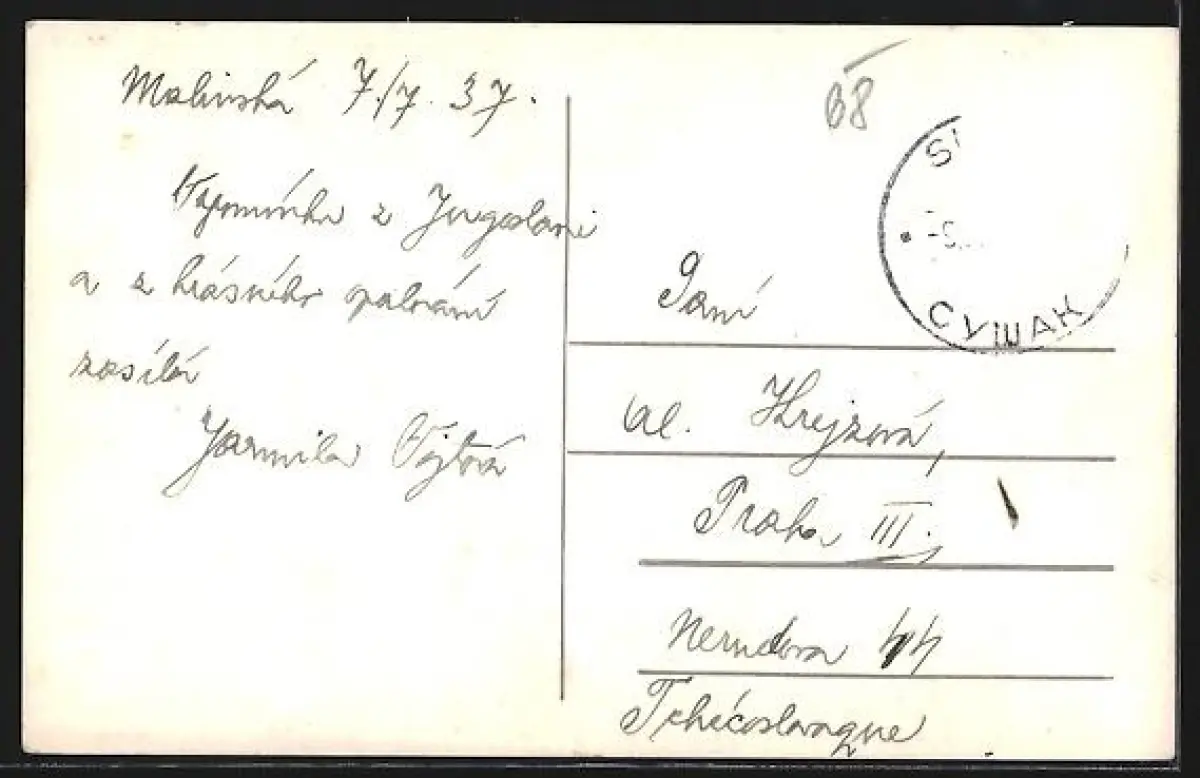 Malinská 7./7. 37.
Vzpomínku z Jugoslavie
a z krásného opalování
zasílá
Jarmila Vojtová
B8
S
СУШАК
Paní
Al. Krejzová,
Praha III.
Nerudova 44
Tchécoslovaque